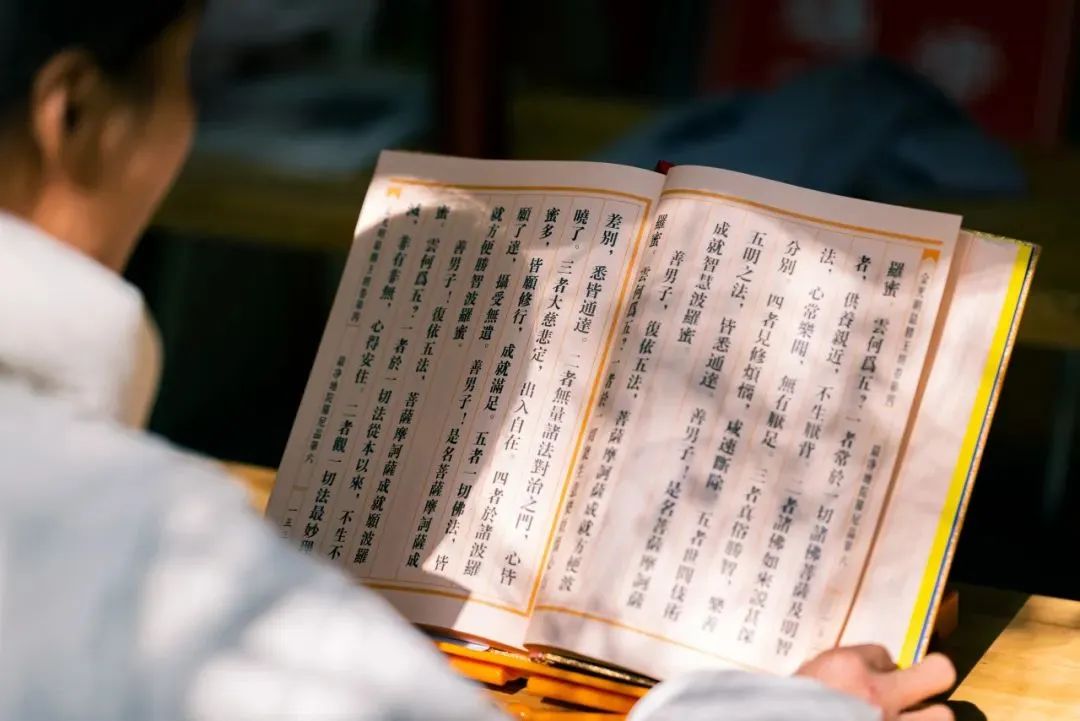 金光明最勝王經卷第四 最淨地陀羅尼品第六
羅蜜。云何爲五？一者常於一切諸佛菩薩及明智
者，供養親近，不生厭背。二者諸佛如來說甚深
法，心常樂聞，無有厭足。三者真俗勝智，樂善
分別。四者見修煩惱，咸速斷除。五者世間伎術
五明之法，皆悉通達。善男子！是名菩薩摩訶薩
成就智慧波羅蜜。
善男子，復依五法，菩薩摩訶薩成就方便波
羅蜜。云何爲五？一者於
差別，悉皆通達。二者無量諸法對治之門，心皆
曉了。三者大慈悲定，出入自在。四者於諸波羅
蜜多，皆願修行，成就滿足。五者一切佛法，皆
願了達，攝受無遺。善男子！是名菩薩摩訶薩成
就方便勝智波羅蜜。
善男子！復依五法，菩薩摩訶薩成就願波羅
蜜。云何爲五？一者於一切法從本以來，不生不
滅，非有非無，心得安住。二者觀一切法最妙理
最淨地陀羅尼品第六 一三